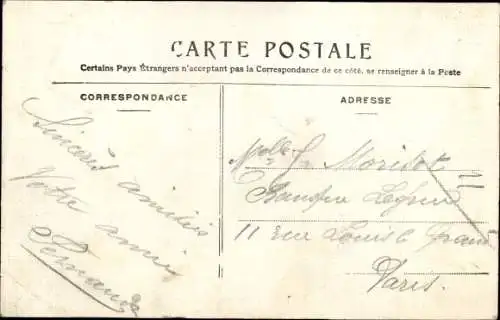 CARTE POSTALE
Certains Pays Étrangers n'acceptant pas la Correspondance de ce côté, se renseigner à la Poste
CORRESPONDANCE
Sincères amitiés
Votre amie
Fernande
ADRESSE
Melle
11 rue Louis le Grand
Paris.